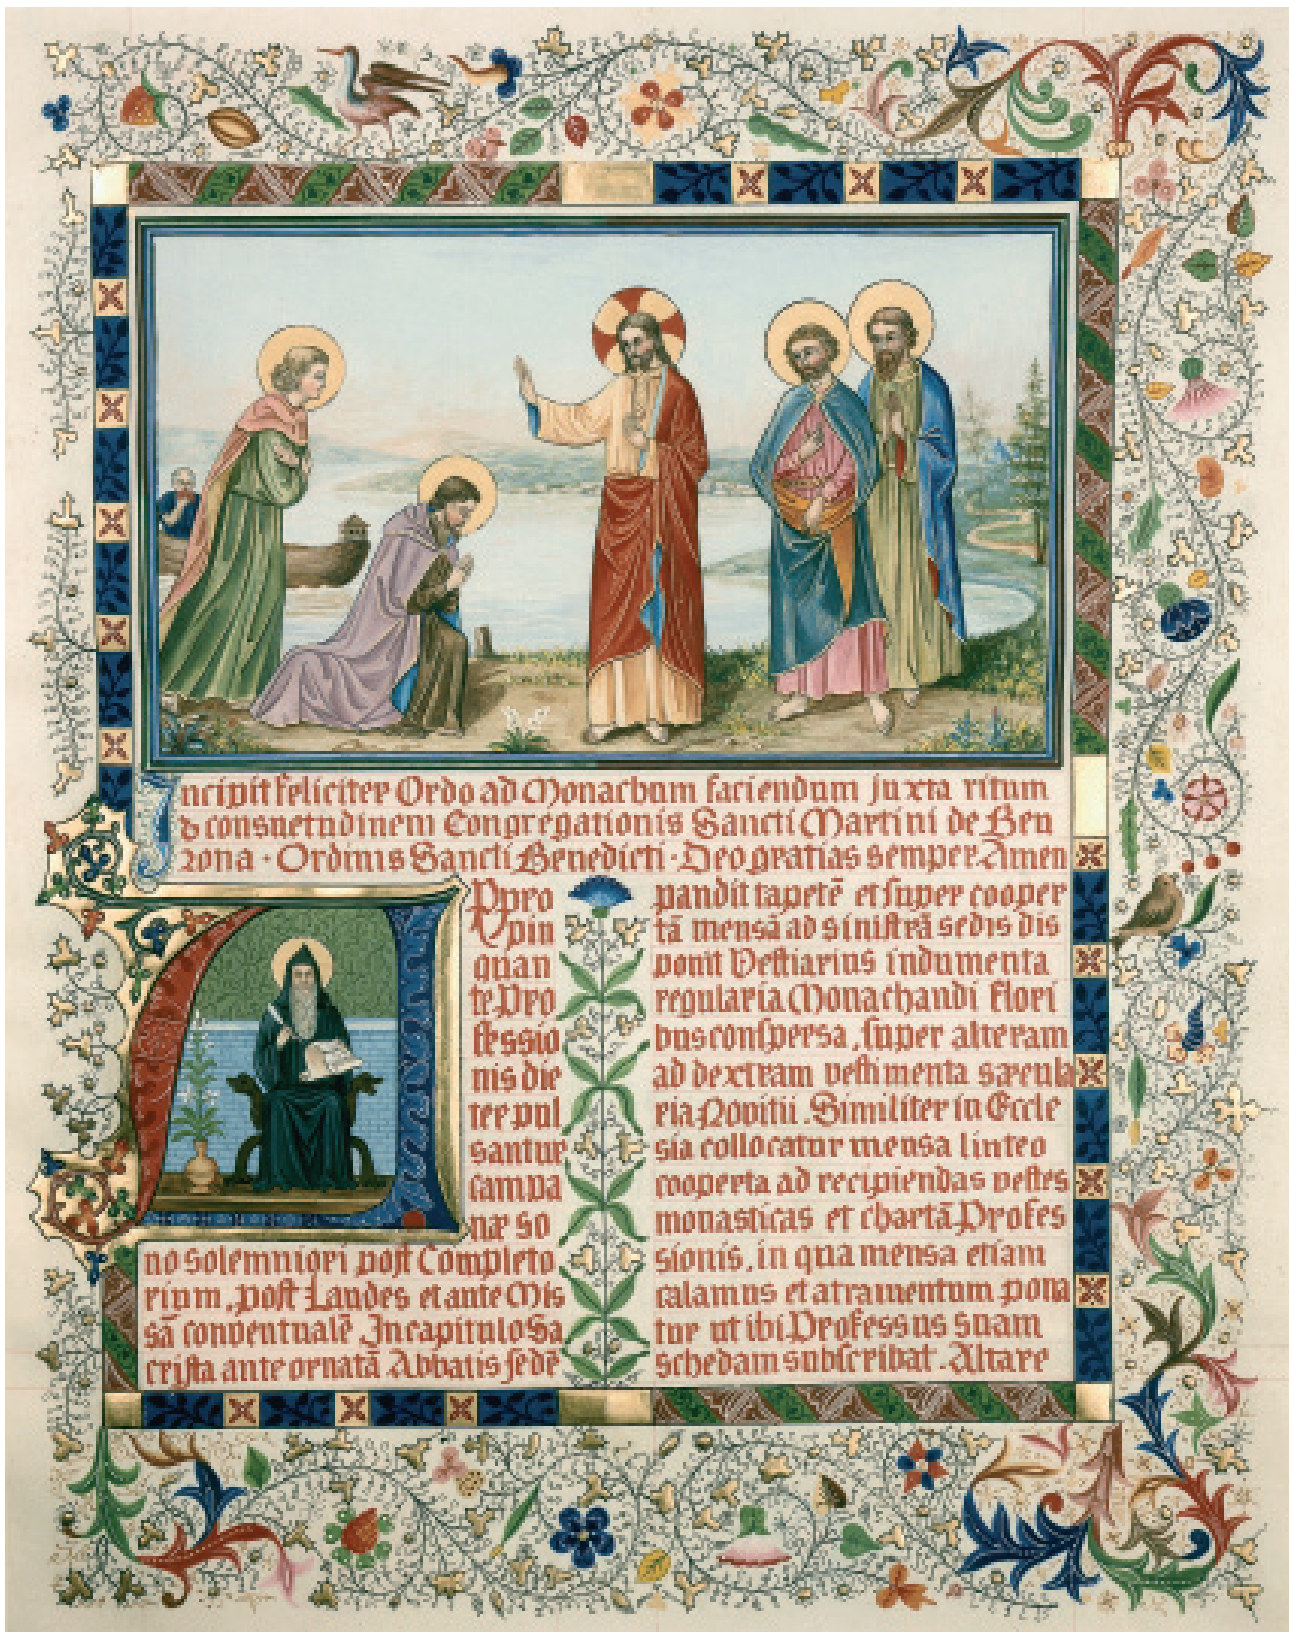 Incipit feliciter Ordo ad Monachum faciendum juxta ritum
& consuetudinem Congregationis Sancti Martini de Beu
rona · Ordinis Sancti Benedicti · Deo gratias semper. Amen
APpro
pin
quan
te Pro
fessio
nis die
ter pul
santur
campa
næ so
no solemniori post Completo
rium, post Laudes et ante Mis
sã conventualẽ. In capitulo Sa
crista ante ornatã Abbatis sedẽ
pandit tapetẽ et super cooper
tã mensã ad sinistrã sedis dis
ponit Vestiarius indumenta
regularia Monachandi flori
bus conspersa, super alteram
ad dextram vestimenta sæcula
ria Novitii. Similiter in Eccle
sia collocatur mensa linteo
cooperta ad recipiendas vestes
monasticas et chartã Profes
sionis, in qua mensa etiam
calamus et atramentum pona
tur ut ibi Professus suam
schedam subscribat. Altare